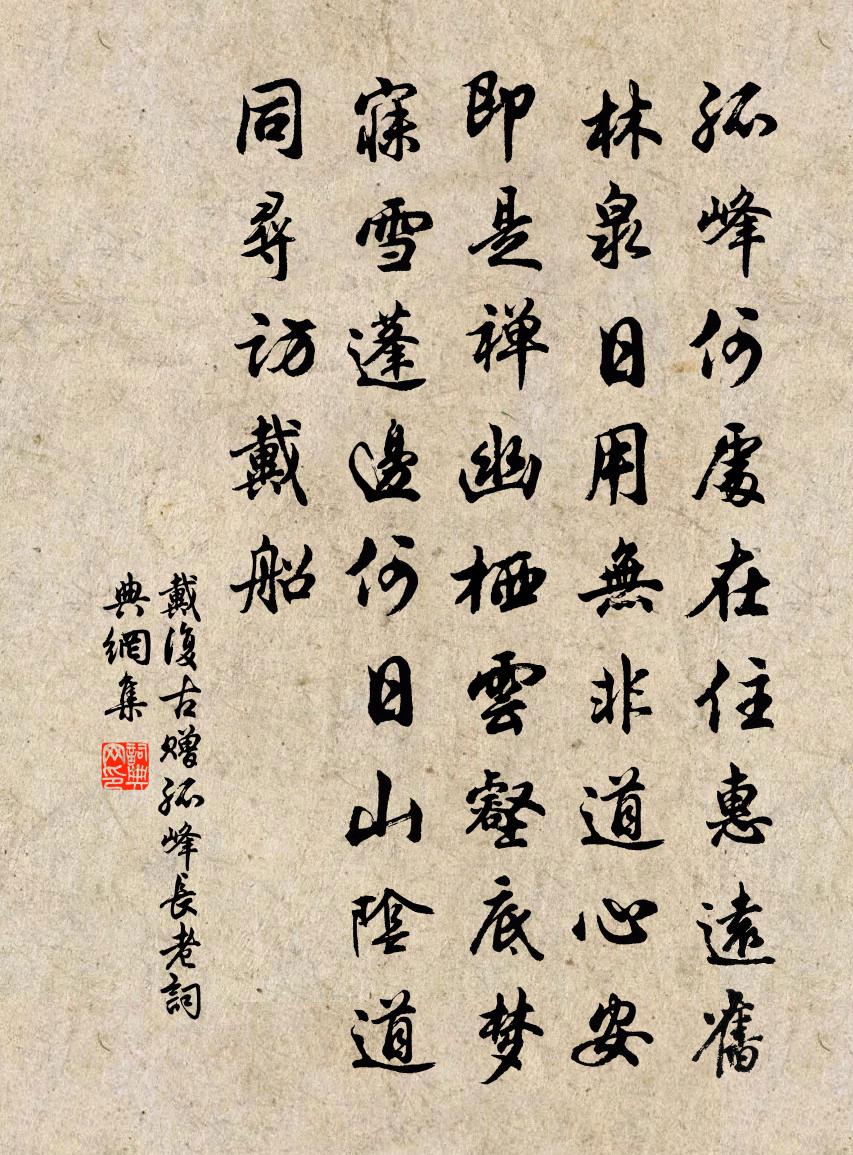 孤峰何處在住惠遠舊
林泉日用無非道心安
即是禅幽栖雲壑底梦
寐雪蓬邊何日山陰道
同尋訪戴船
戴復古赠孤峰長老詞
典網集
詞典
网印